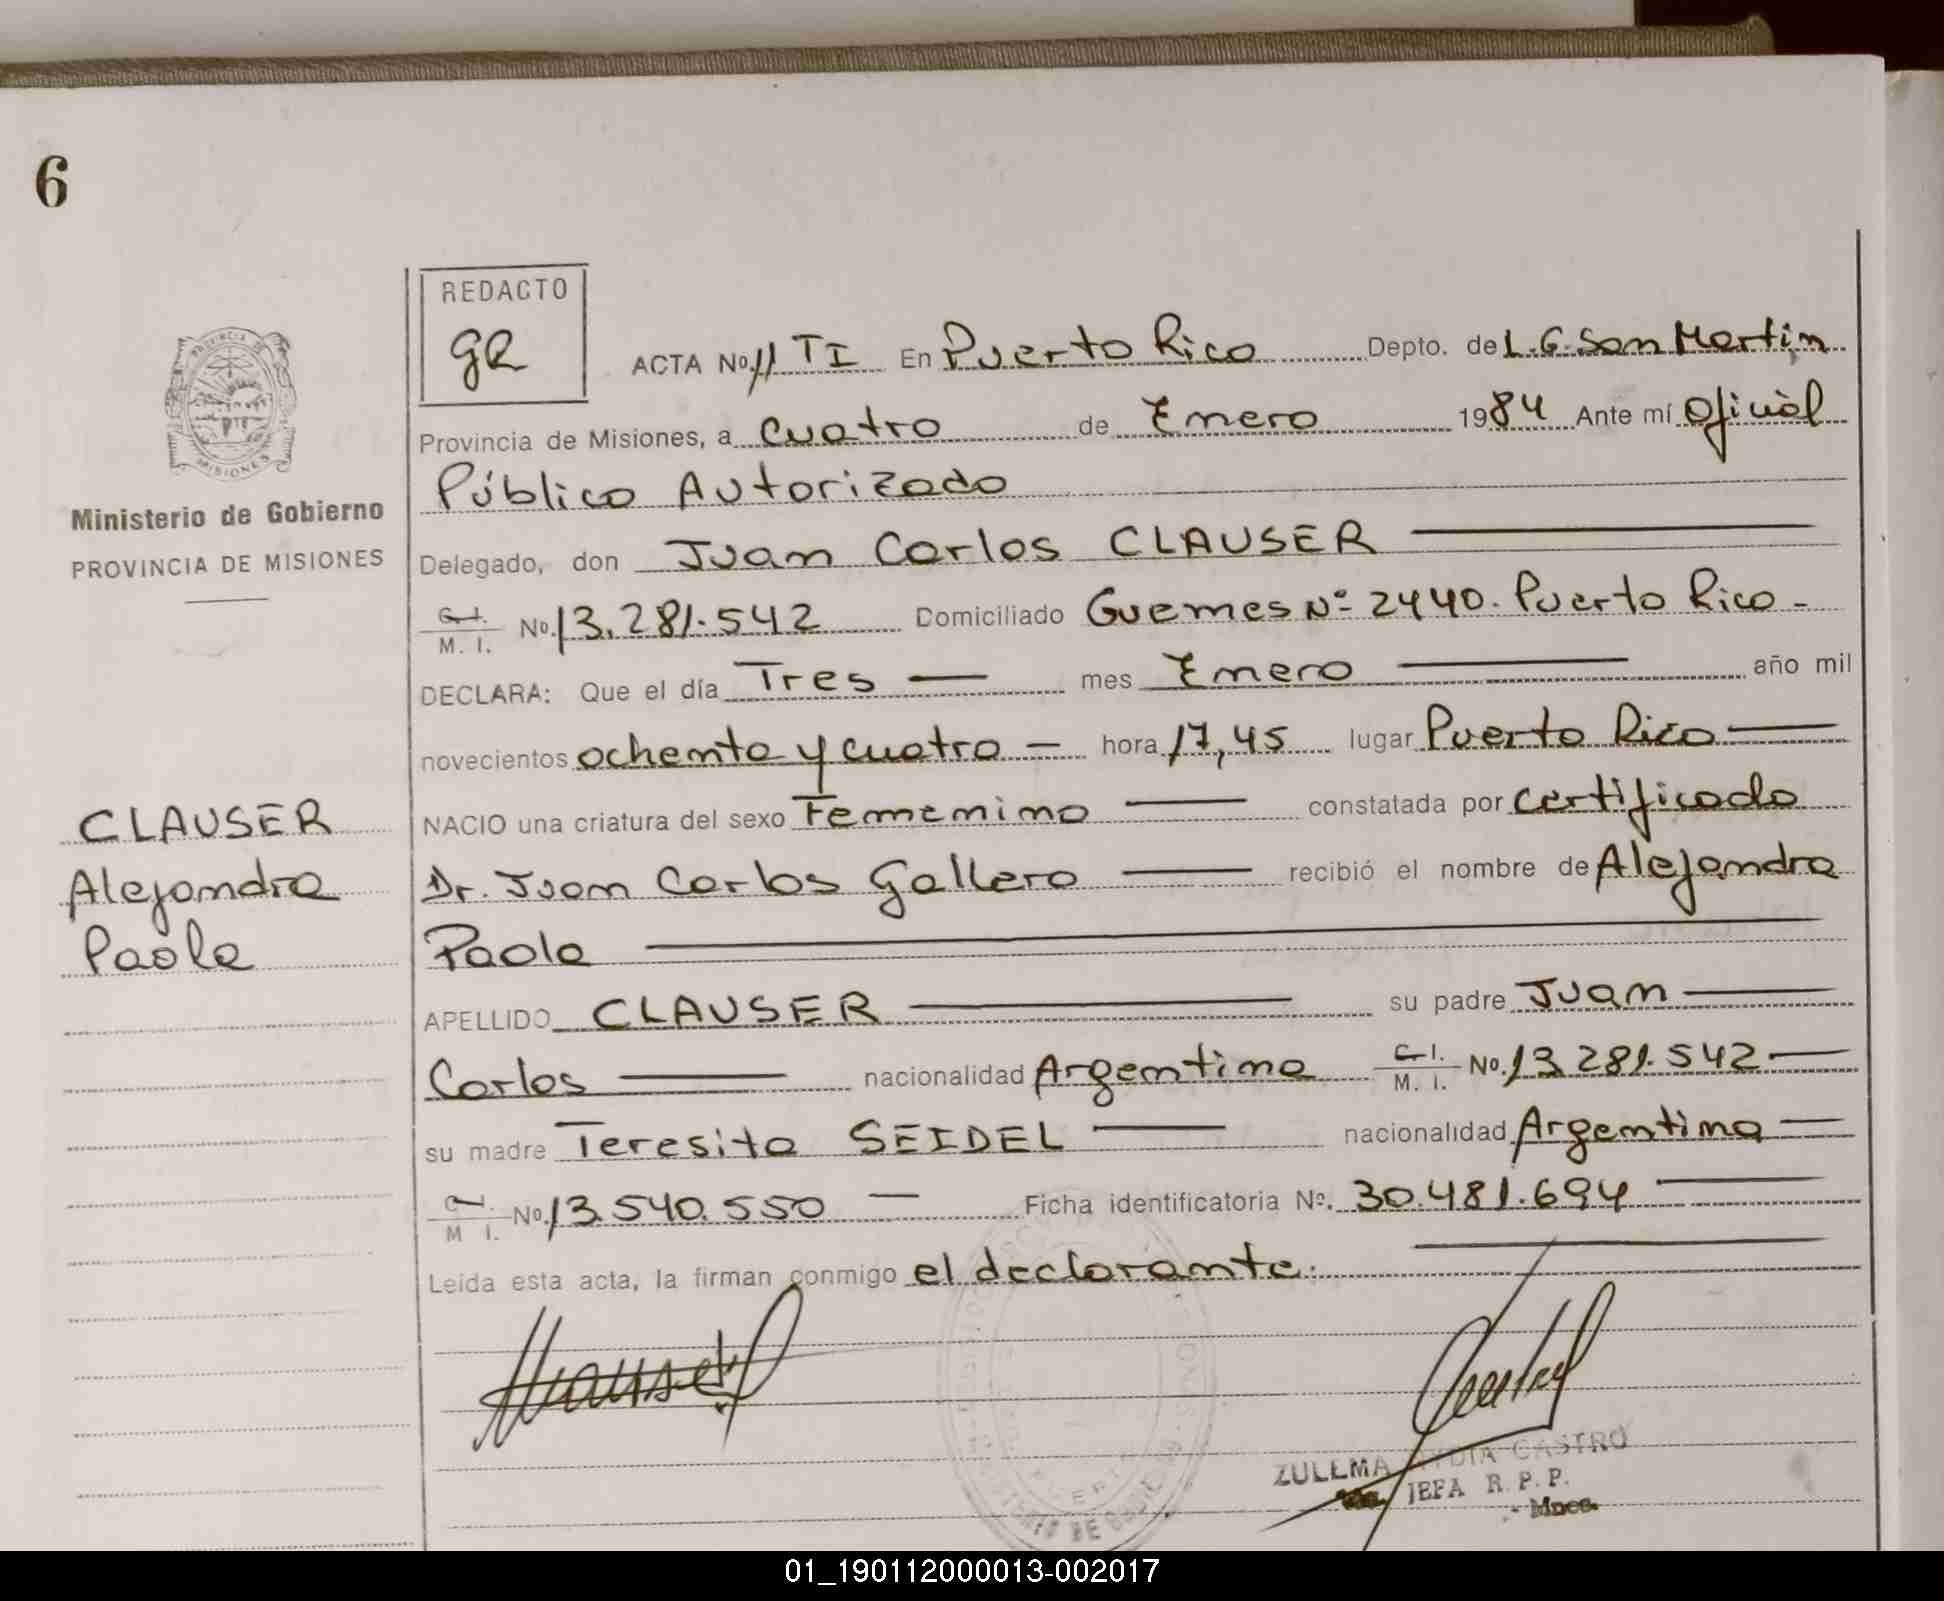 6
REDACTO
gR
ACTA No. 11 TI En Puerto Rico Depto. de L.G. San Martín
Provincia de Misiones, a cuatro de Enero 1984 Ante mí Oficial
Público Autorizado
Delegado, don Juan Carlos CLAUSER
C. I. M. I. No. 13.281.542 Domiciliado Guemes Nº 2440. Puerto Rico -
DECLARA: Que el día Tres mes Enero año mil
novecientos ochenta y cuatro hora 17,45 lugar Puerto Rico
NACIO una criatura del sexo Femenino constatada por certificado
Dr. Juan Carlos Gallero recibió el nombre de Alejandra
Paola
APELLIDO CLAUSER su padre Juan
Carlos nacionalidad Argentina C. I. M. I. No. 13 281.542
su madre Teresita SEIDEL nacionalidad Argentina
C. I. M I. No. 13.540.550 Ficha identificatoria Nº. 30.481.694
Leída esta acta, la firman conmigo el declarante.
PROVINCIA DE
MISIONES
Ministerio de Gobierno
PROVINCIA DE MISIONES
CLAUSER
Alejandra
Paola
ZULEMA LYDIA CASTRO
JEFA R. P. P.
Mnes.
01_190112000013-002017